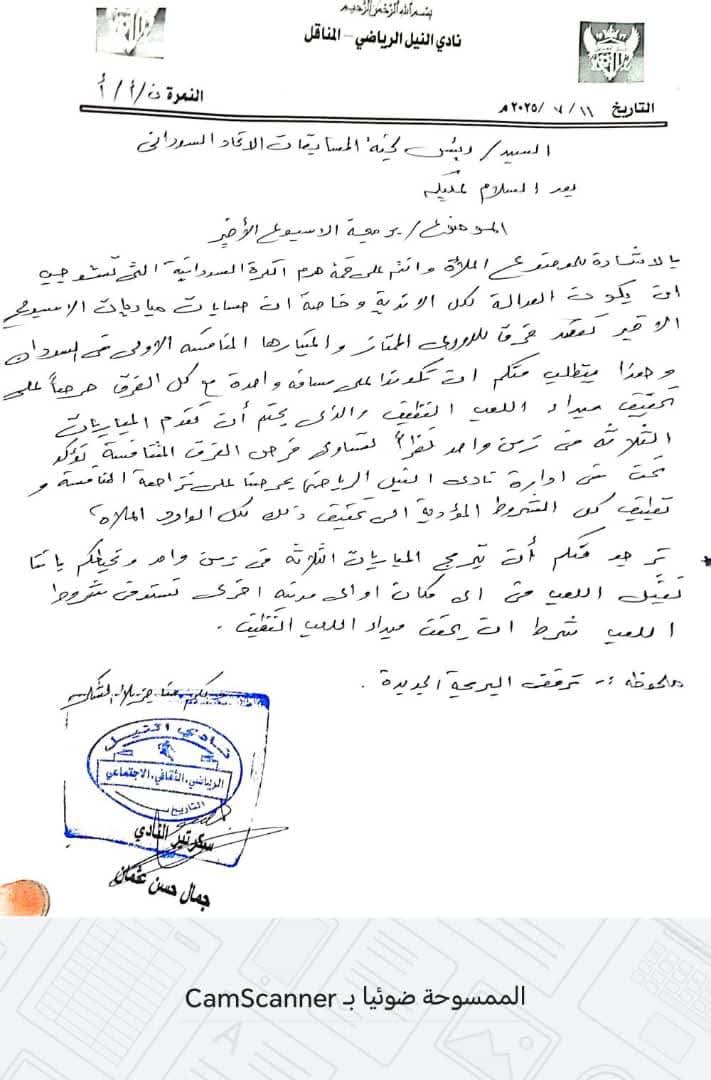 بسم الله الرحمن الرحيم
نادي النيل الرياضي - المناقل
النمرة ن/أ/أ
التاريخ ١١/ ٧ /٢٠٢٥م
السيد/ رئيس لجنة المسابقات الاتحاد السوداني
بعد السلام عليكم
الموضوع/ برمجة الاسبوع الأخير
بالاشارة للموضوع اعلاه وانتم على قمة هرم الكرة السودانية التى
ان يكون العدالة لكل الاندية وخاصة ان حسابات مباريات الاسبوع
الاخير تصعد فرقا للدورى الممتاز واعتبارها المنافسة الاولى فى السودان
وهذا يتطلب منكم ان تكونوا على مسافة واحدة مع كل الفرق حرصاً على
تحقيق مبداء اللعب النظيف والذى يحتم أن تقدم المباريات
الثلاثة فى زمن واحد نظراً لتساوى فرص الفرق المتنافسة نؤكد
نحن فى ادارة نادى النيل الرياضى حرصنا على المنافسة و
تطبيق كل الشروط المؤدية الى تحقيق ذلك لكل الوارد اعلاه
نرجو منكم أن تبرمج المباريات الثلاثة فى زمن واحد ونحيطكم باننا
نقبل اللعب فى اى مكان او اى مدينة اخرى تستوفى شروط
اللعب شرط ان يحقق مبداء اللعب النظيف .
ملحوظة :- نرفق البرمجة الجديدة .
ولكم منا جزيل الشكر
نادي النيل
الرياضي . الثقافي . الاجتماعي
التاريخ
سكرتير النادي
جمال حسن عثمان
الممسوحة ضوئيا بـ CamScanner